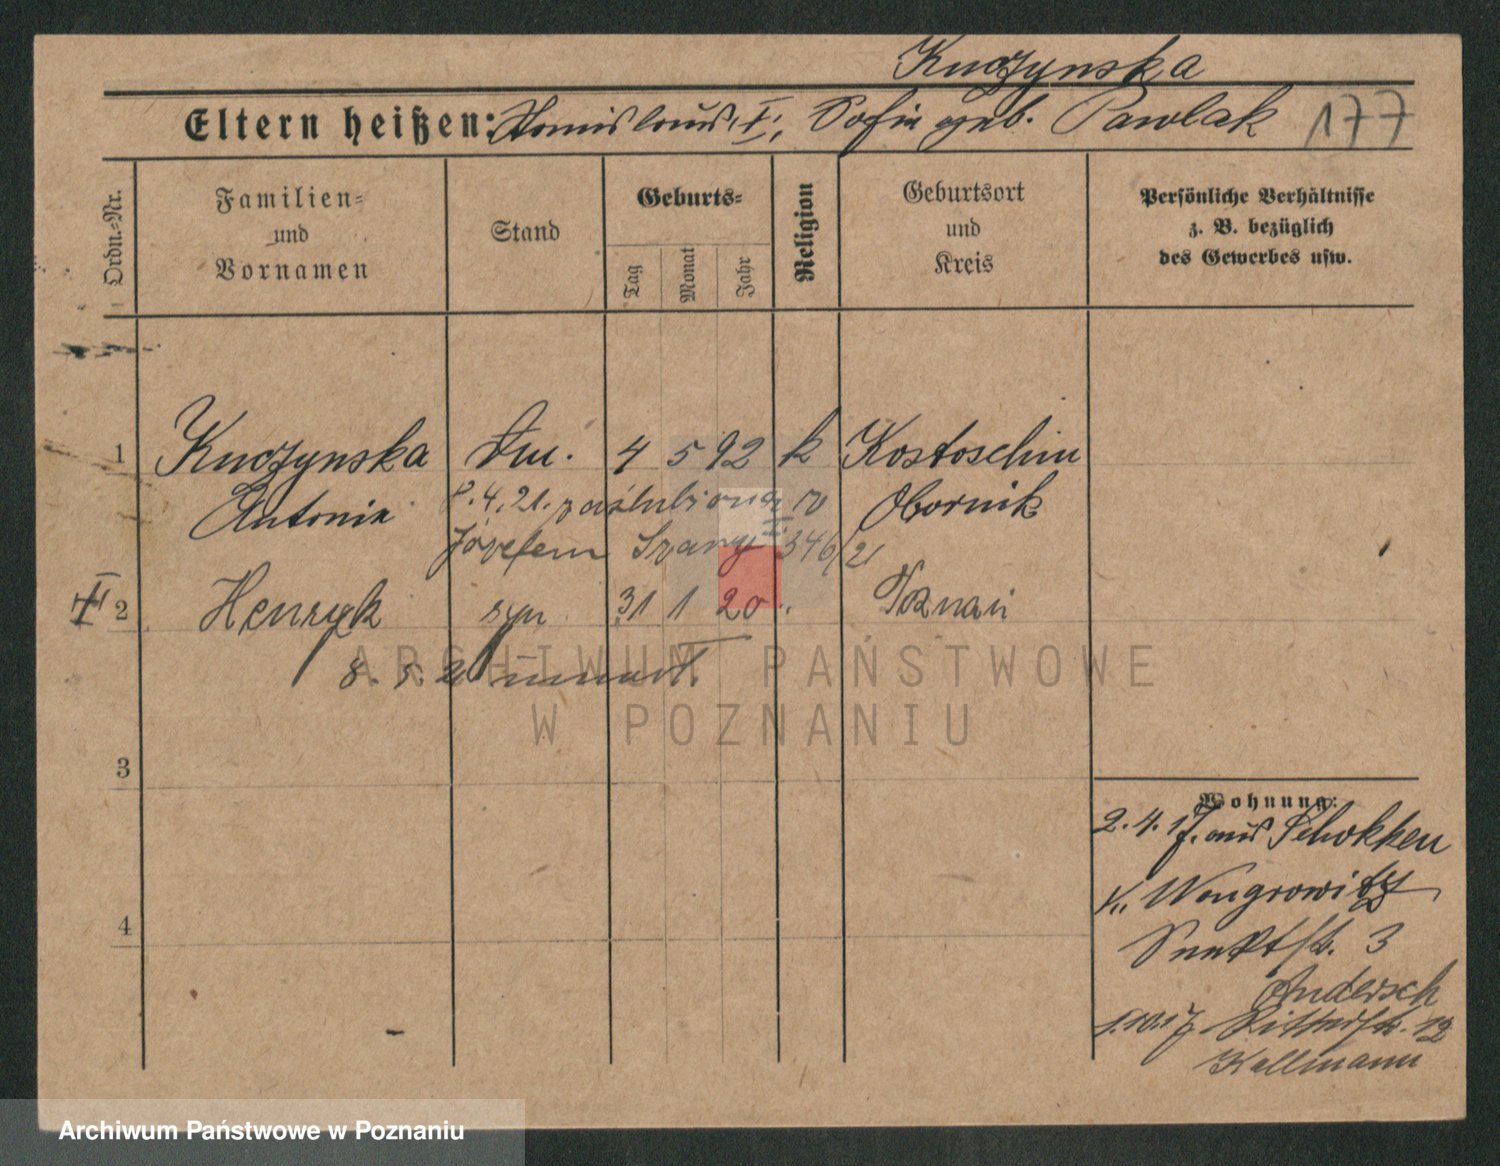 Kuczynska
Eltern heißen: Stanislaus I, Sofie geb. Pawlak 177
Ordn.-Nr.
Familien- und Vornamen
Stand
Geburts-
Tag Monat Jahr
Religion
Geburtsort und Kreis
Persönliche Verhältnisse z. B. bezüglich des Gewerbes usw.
1 Kuczynska 4 5 92 k Kostoschin
Antonia Obornik
8.4.21. zaślubiona
Józefem 346/21
2 Henryk syn 31 1 20 " Poznań
8. 5. 2
3
4
Wohnung:
2.4.17. aus Schokken
K. Wongrowitz
3
Andersch
1.10.17 Ritterstr. 12
Kallmann
ARCHIWUM PAŃSTWOWE
W POZNANIU
Archiwum Państwowe w Poznaniu